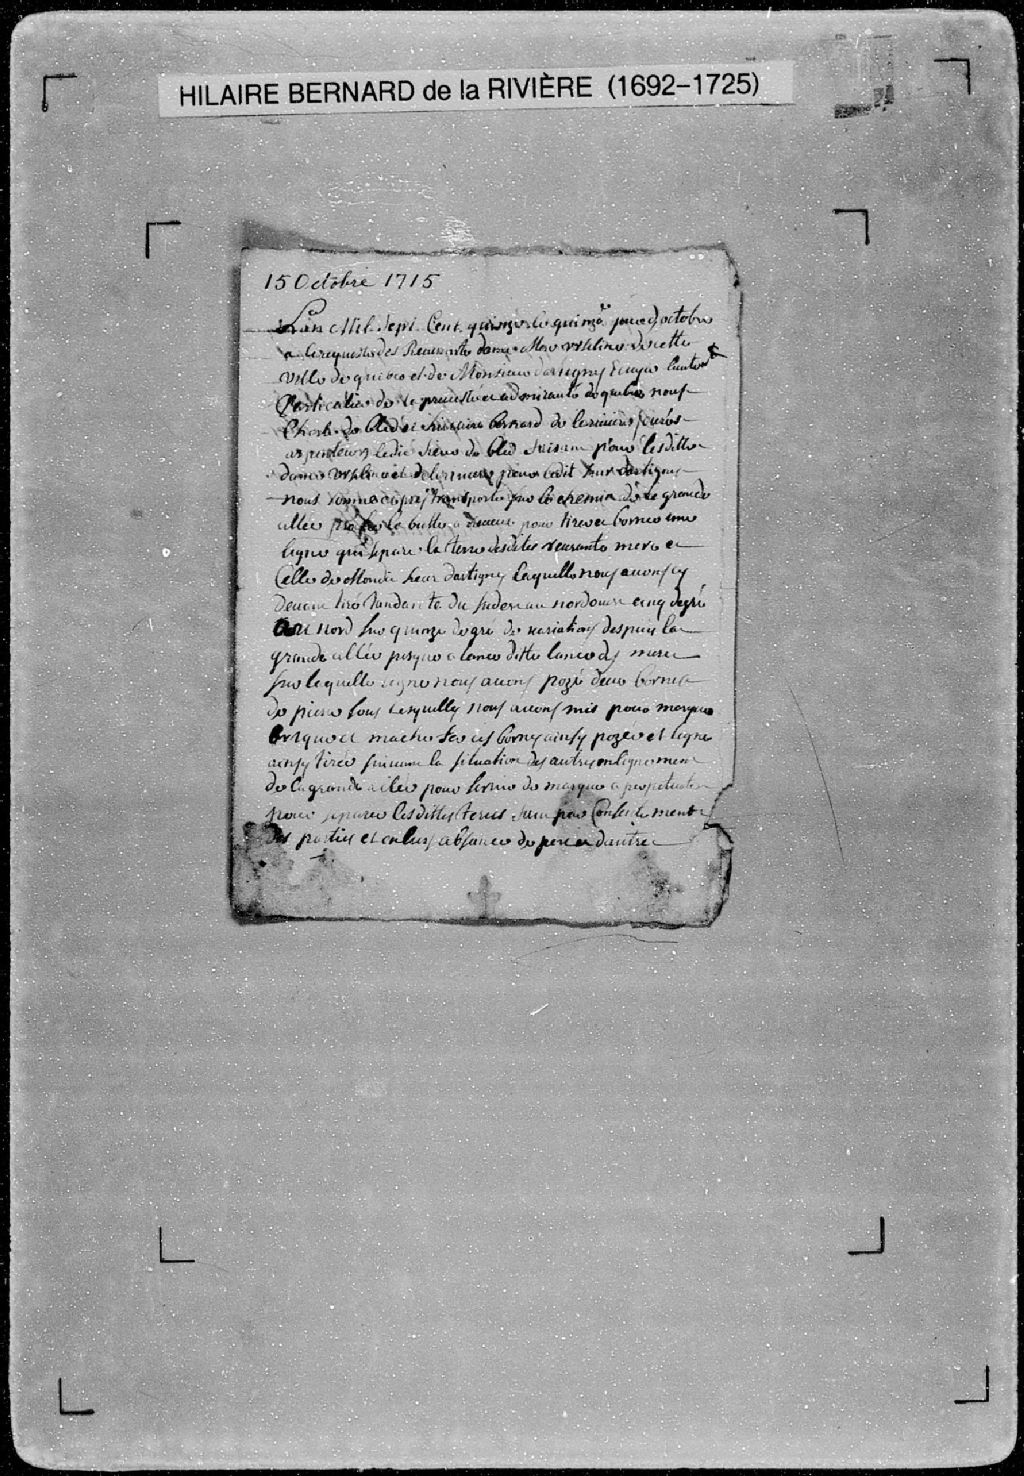 HILAIRE BERNARD de la RIVIÈRE (1692–1725)
15 Octobre 1715
Lan Mil Sept Cent quinze le quinze jour doctobre
a la requeste des Reuerante dame Mere Ursuline de cette
ville de quebec et de Monsieur dartigny Ecuyer
Particulier de la preuosté et admirauté de quebec nous
Charle du Bled et hilaire bernard de lariuiere jurés
arpenteurs ledit sieur du Bled pour lesditte
dame Ursuline et delariuiere pour ledit sieur dartigny
nous somme transporte sur le chemin de la grande
allée la butte a pour tirer et borner une
ligne qui separe la terre desdites reuerante mere et
Celle de Mondit sieur dartigny laquelle nous auons cy
deuant tiré tandante du sudest au nordouest cinq degré
au nord sur quinze degré de uariation despuis la
grande allée jusque a lance ditte lance des mere
sur laquelle ligne nous auons pozé deux bornes
de pierre sous lesquelles nous auons mis pour marque
brique et machefer les bornes ainsy pozée et ligne
ainsy tirée suiuant la situation des autres enlignement
de la grande allée pour seruir de marque a perpetuité
pour separer lesdittes terres par Consentement
des parties et en leurs absance de pere et dautre